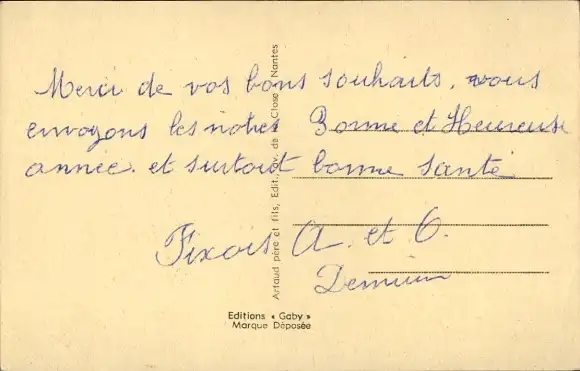 Merci de vos bons souhaits, vous
envoyons les notres Bonne et Heureuse
année. et surtout bonne santé
A. et O.
Artaud père et fils, Edit., av. de la Close Nantes
Editions « Gaby »
Marque Déposée